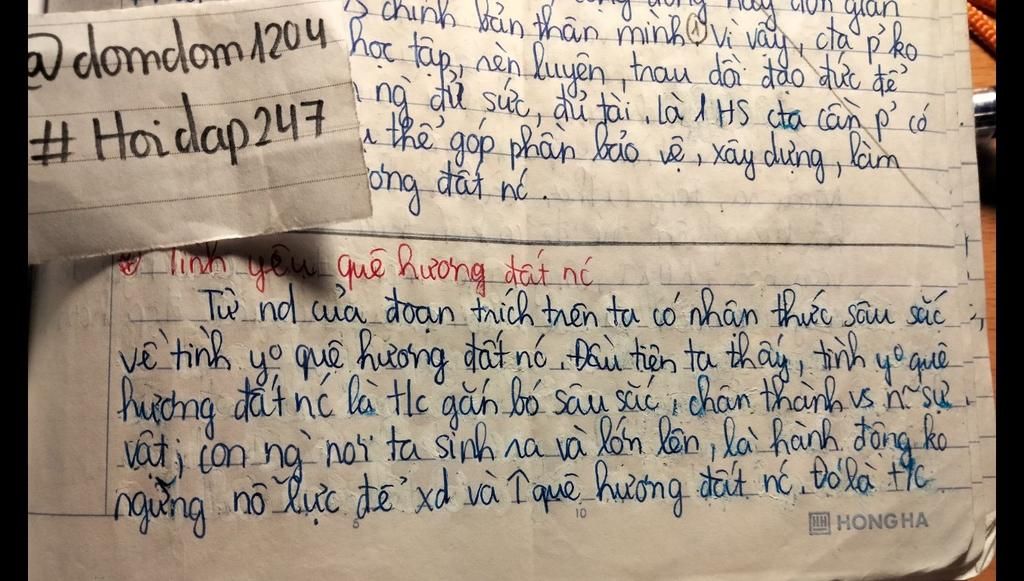 @domdom1204
#Hoidap247
chính bản thân mình ① vì vậy, cta p' ko
học tập, rèn luyện, trau dồi đạo đức để
ng đủ sức, đủ tài. Là 1 HS cta cần p' có
thể góp phần bảo vệ, xây dựng, làm
ơng đất nc.
Tình yêu quê hương đất nc
Từ nd của đoạn trích trên ta có nhận thức sâu sắc
về tình yº quê hương đất nc. Đầu tiên ta thấy, tình yº quê
hương đất nc là t/c gắn bó sâu sắc, chân thành vs n~ sự
vật, con ng nơi ta sinh ra và lớn lên, là hành động ko
ngừng nỗ lực để xd và ↑ quê hương đất nc. Đó là t/c
HONG HA